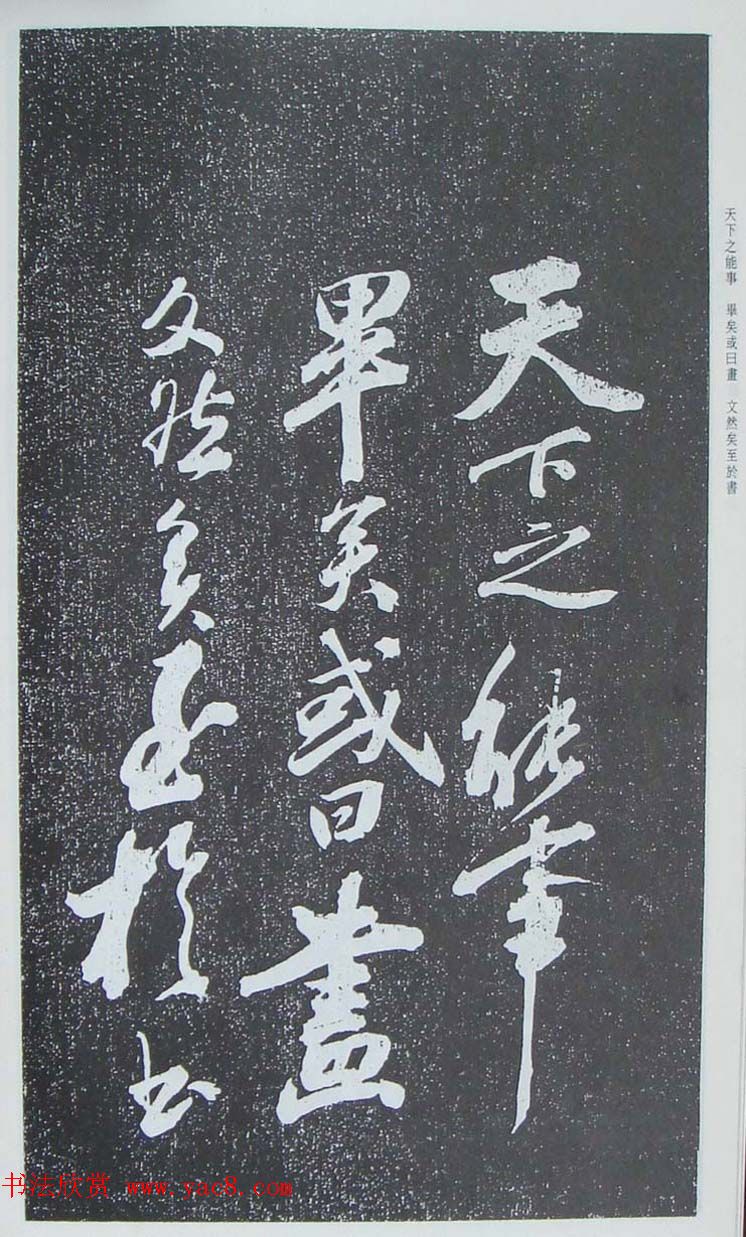 天下之能事
畢矣或曰畫
文然矣至於書
天下之能事　畢矣或曰畫　文然矣至於書
书法欣赏 www.yac8.com